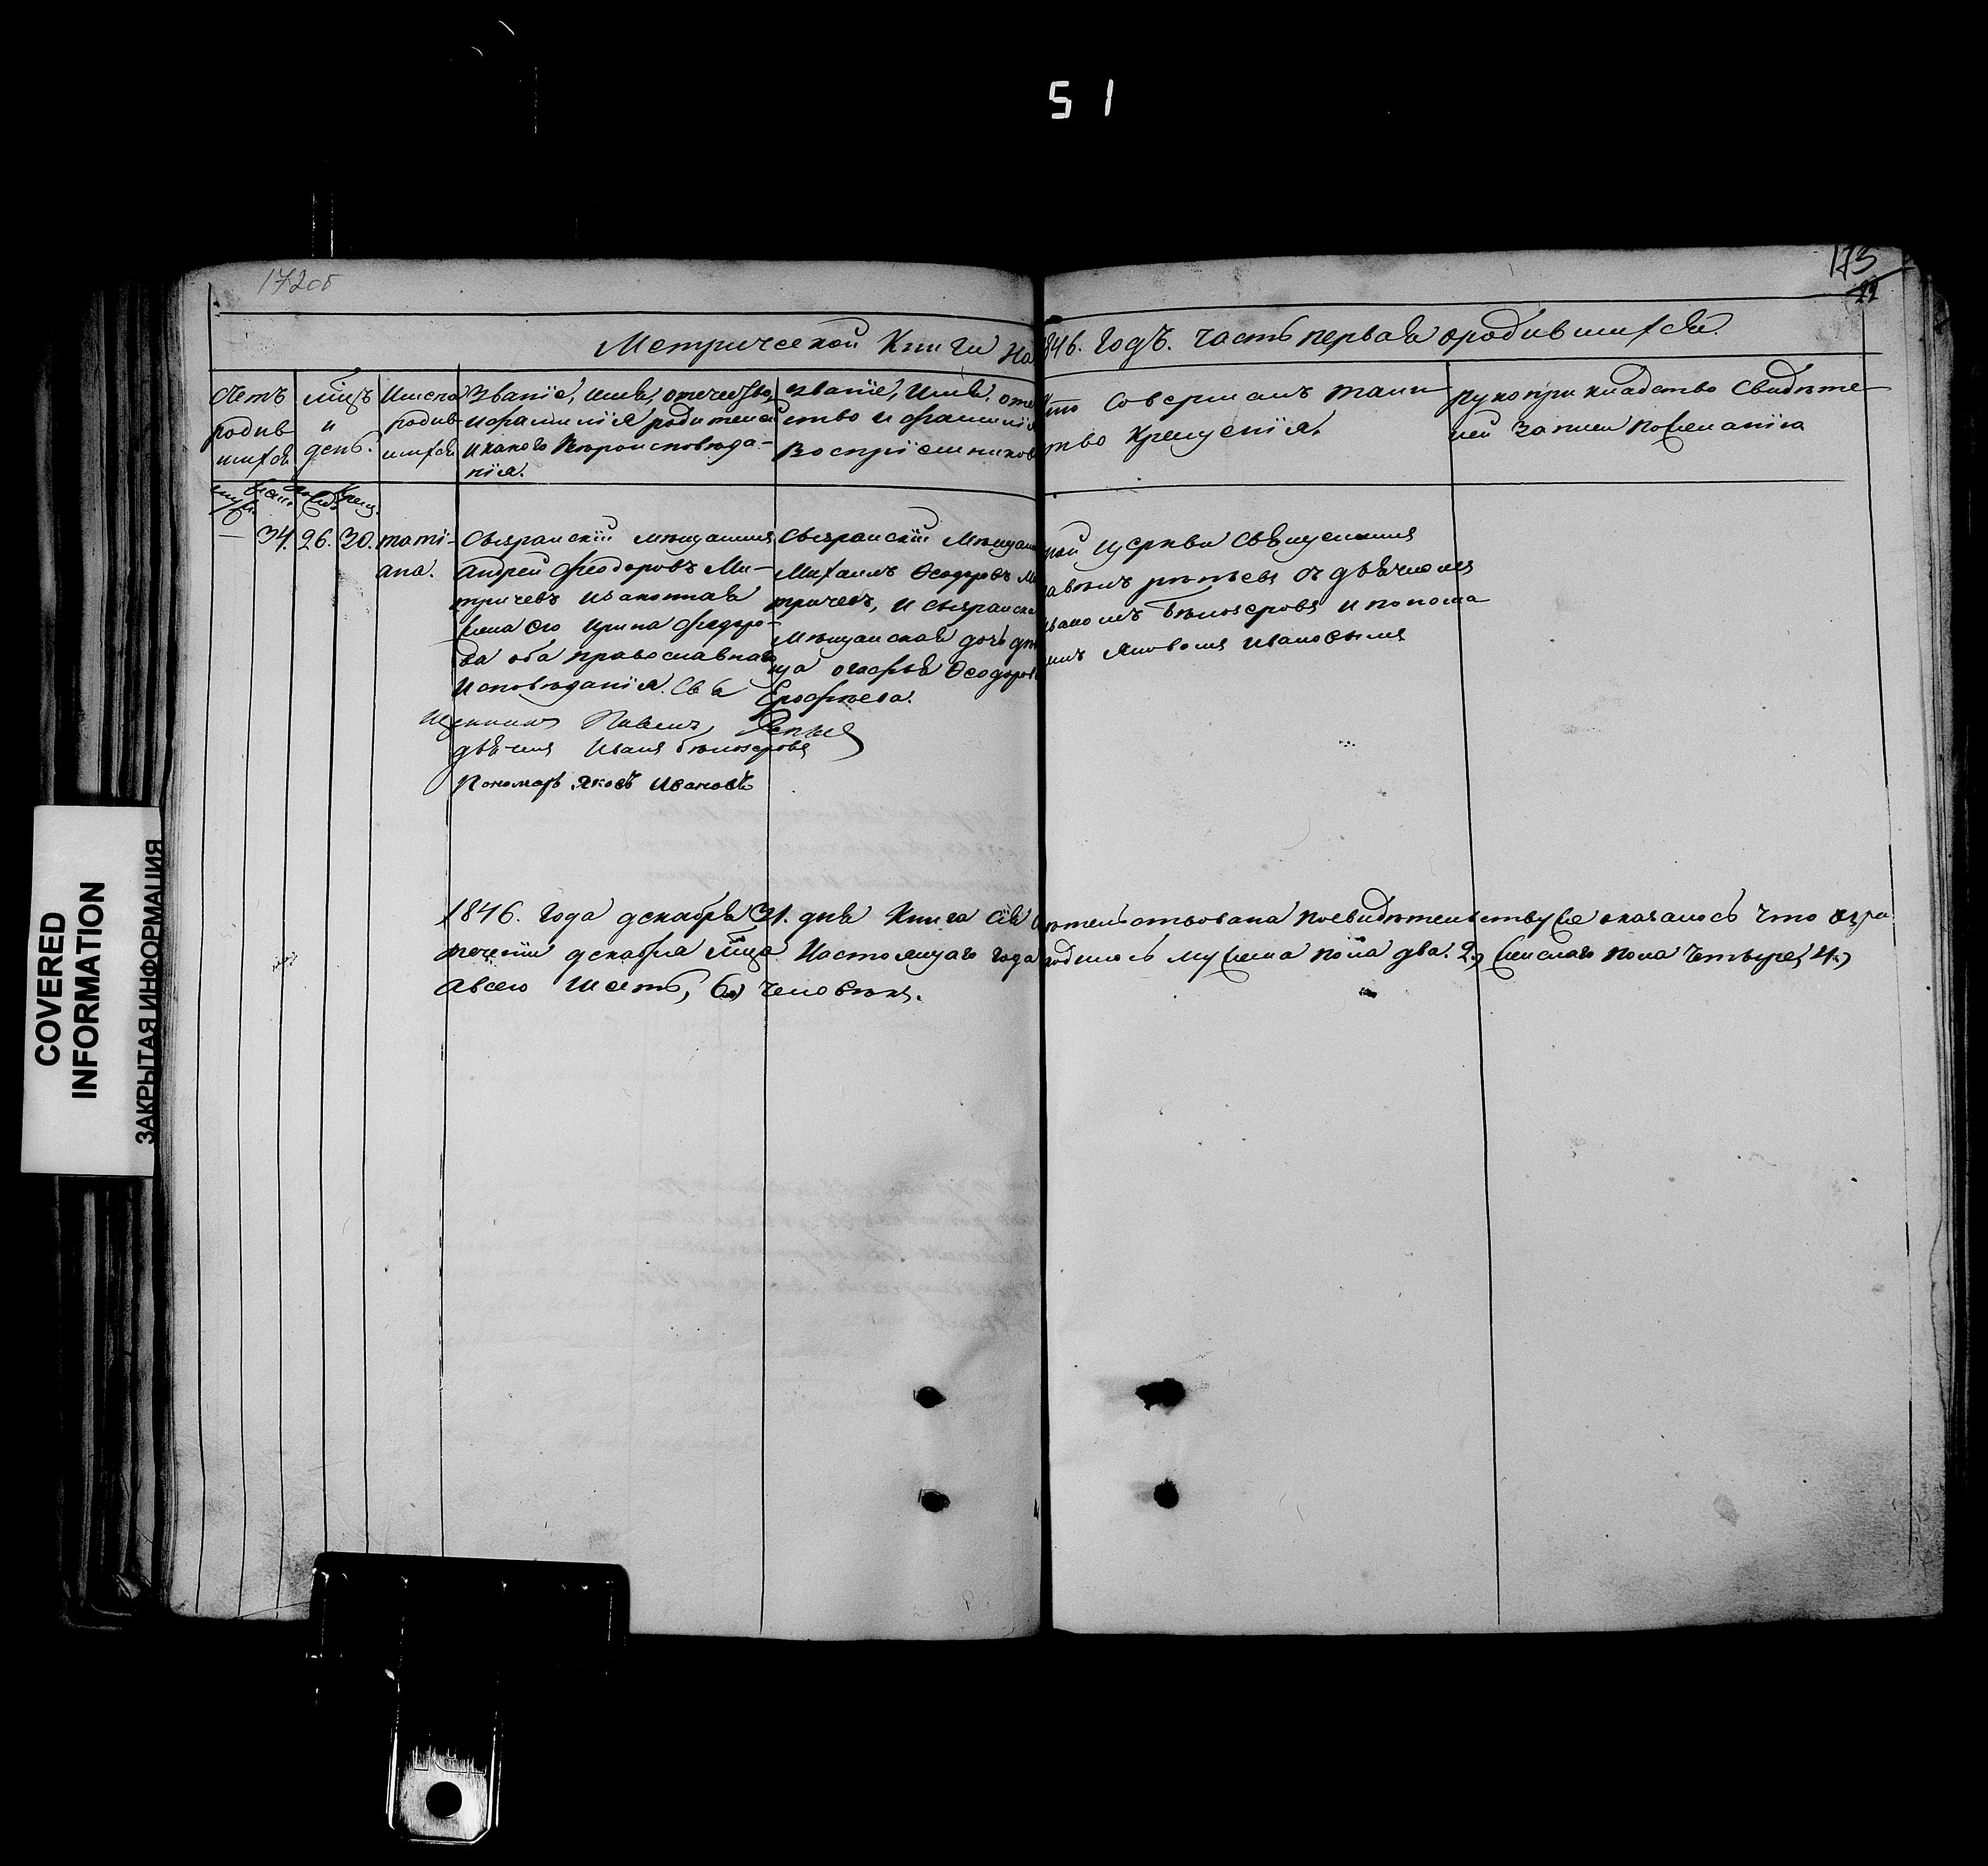 51
172об
173
22
Метрической Книги на 1846. Годъ. часть первая ородившихся.
Счетъ родив шихся
мцъ и день.
Имена родив шихся
Званіе, имя, отечество, и фамилія родителей и какого Вѣроисповѣда-нія.
Званіе, Имя, оте ство и фамилія Воспріемников
Кто Совершалъ таин ство Крещенія.
Рукоприкладство Свидѣте лей Записи пожеланію
— 34. 26. 30. тати-
ана.
Сызранскій мѣщанинъ
Андрей Феодоровъ Ми-
тричевъ изаконная
жена его Ирина Феодоро-
ва оба православнаго
Исповѣданія. Свя
щенникъ Павелъ Репьев
дьячекъ Иванъ Бѣлозеровъ
Пономарь Яковъ Ивановъ
Сызранскій Мѣщан
Михаилъ Ѳеодоровъ Ми
тричевъ, и сызранска
Мѣщанская дочь дѣ
ица Ѳеодоров
Ерофѣева.
Церкви Священникъ
Павелъ Репьевъ съ дьячкомъ
Иваномъ Бѣлозеровъ и понома
Яковомъ Ивановымъ
1846. Года декабря 31. дня Книга сія свидѣтельствована посвидѣтельству же оказалось что
течении декабря мца Настоящаго года родилось мужеска пола два. 2, женскаго пола четыре, 4,
авсего шесть, 6) человѣкъ.
COVERED
INFORMATION
ЗАКРЫТАЯ ИНФОРМАЦИЯ